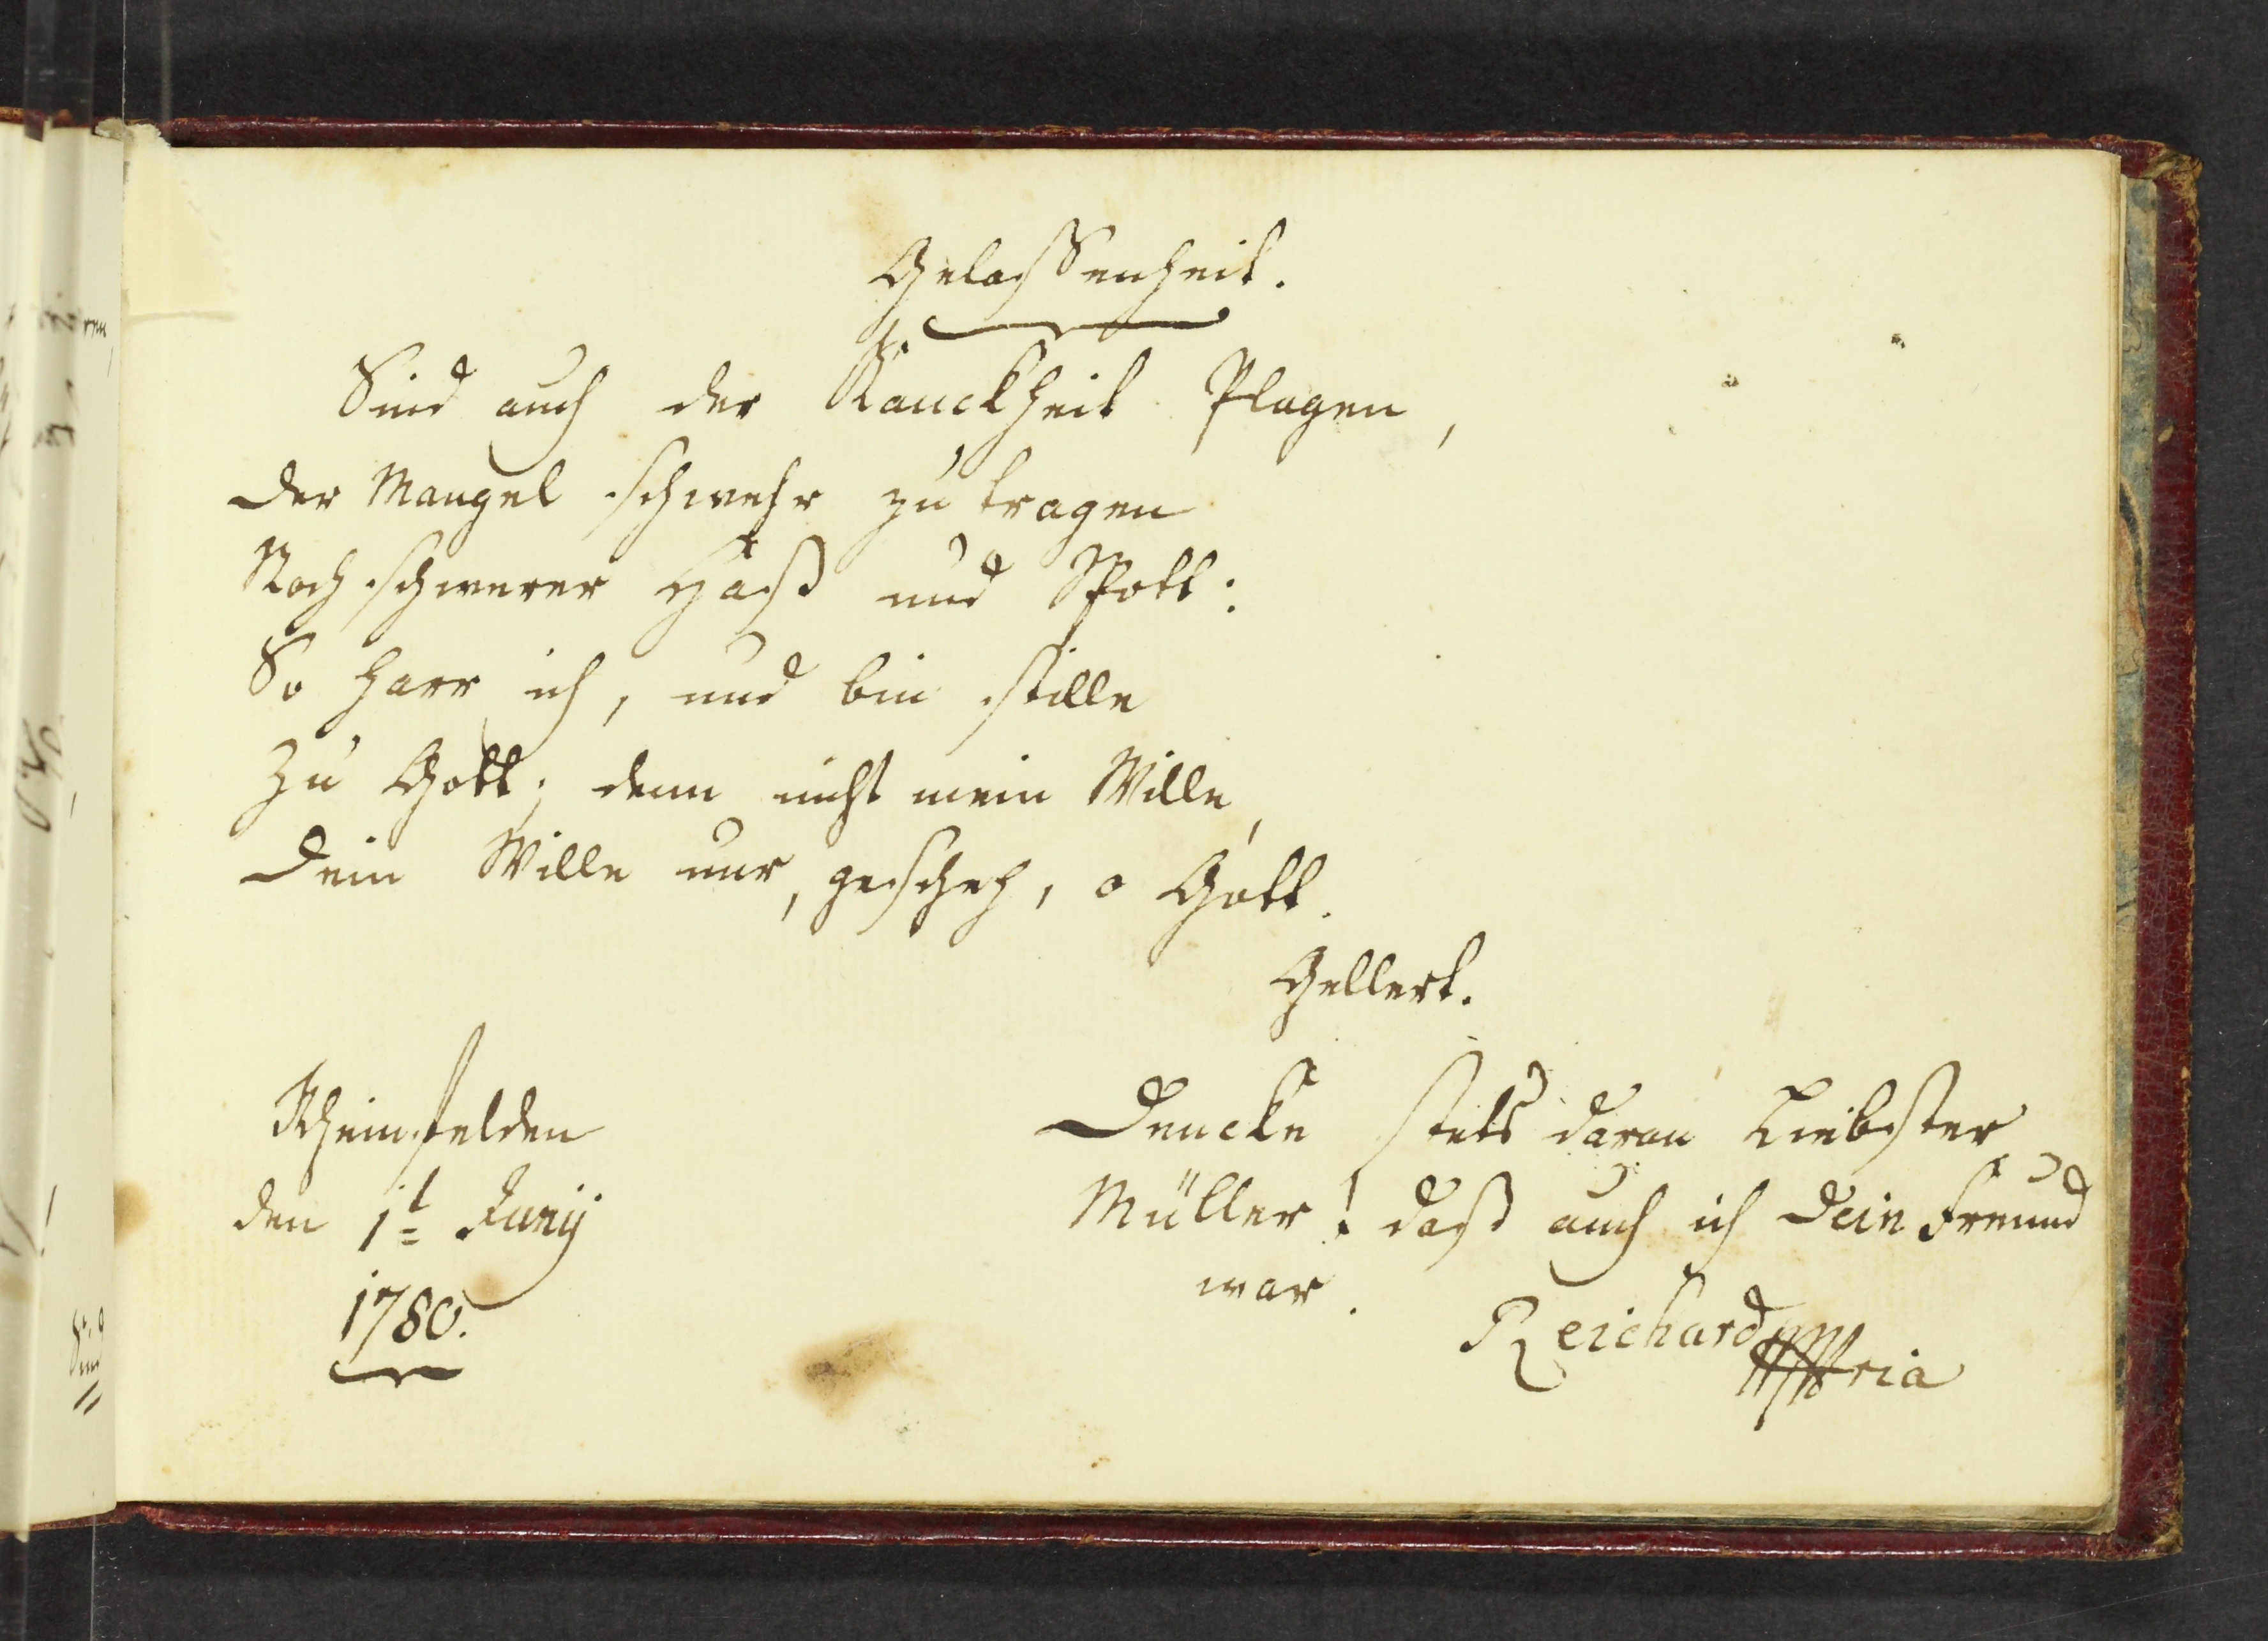 Gelassenheit.
Sind auch der Kranckheit Plagen,
Der Mangel schwehr zu tragen
Noch schwerer Haß und Spott:
So harr ich, und bin stille
Zu Gott; denn nicht mein Wille,
Dein Wille nur, gescheh, o Gott.
Gellert.
Rheinfelden
den 1t Junij
1780.
Dencke stets daran Liebster
Müller! daß auch ich Dein Freund
war.
Reichard